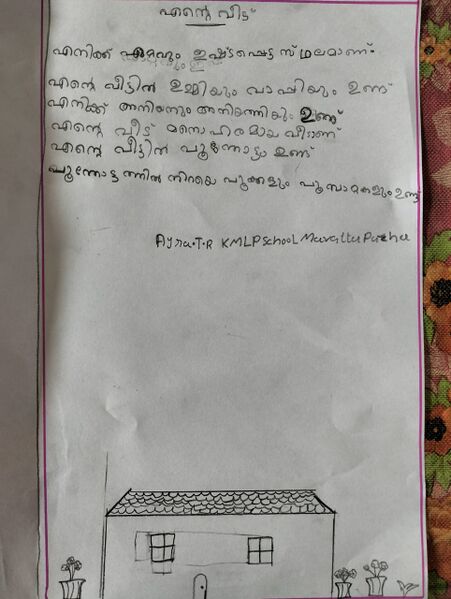 എന്റെ വീട്
എനിക്ക് ഏറ്റവും ഇഷ്ടപ്പെട്ട സ്ഥലമാണ്.
എന്റെ വീട്ടിൽ ഉമ്മിയും വാപ്പിയും ഉണ്ട്
എനിക്ക് അനിയനും അനിയത്തിയും ഉണ്ട്
എന്റെ വീട് മനോഹരമായ വീടാണ്
എന്റെ വീട്ടിൽ പൂന്തോട്ടം ഉണ്ട്
പൂന്തോട്ടത്തിൽ നിറയെ പൂക്കളും പൂമ്പാറ്റകളും ഉണ്ട്
Ayra.T.R KMLPSchool